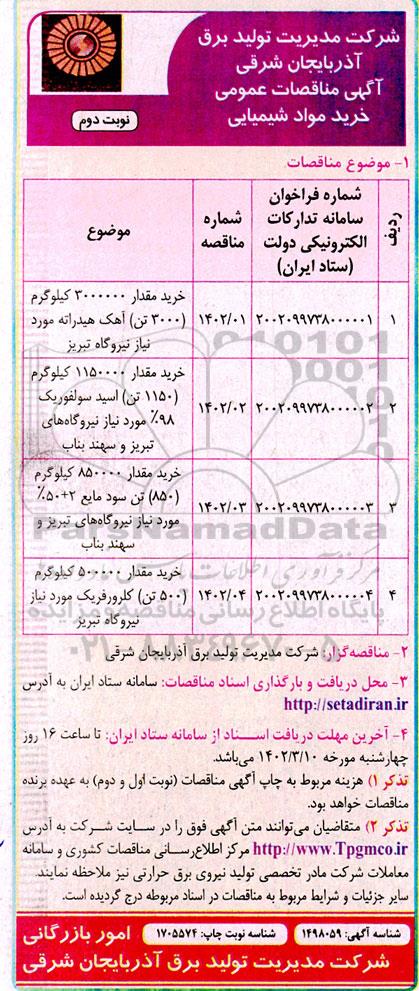 شرکت مدیریت تولید برق
آذربایجان شرقی
آگهی مناقصات عمومی
خرید مواد شیمیایی
نوبت دوم
۱- موضوع مناقصات
ردیف
شماره فراخوان
سامانه تدارکات
الکترونیکی دولت
(ستاد ایران)
شماره
مناقصه
موضوع
۱
۲۰۰۲۰۹۹۷۳۸۰۰۰۰۰۱
۱۴۰۲/۰۱
خرید مقدار ۳۰۰۰۰۰۰ کیلوگرم
(۳۰۰۰ تن) آهک هیدراته مورد
نیاز نیروگاه تبریز
۲
۲۰۰۲۰۹۹۷۳۸۰۰۰۰۰۲
۱۴۰۲/۰۲
خرید مقدار ۱۱۵۰۰۰۰ کیلوگرم
(۱۱۵۰ تن) اسید سولفوریک
۹۸٪ مورد نیاز نیروگاه‌های
تبریز و سهند بناب
۳
۲۰۰۲۰۹۹۷۳۸۰۰۰۰۰۳
۱۴۰۲/۰۳
خرید مقدار ۸۵۰۰۰۰ کیلوگرم
(۸۵۰) تن سود مایع ۲+۵۰٪
مورد نیاز نیروگاه‌های تبریز و
سهند بناب
۴
۲۰۰۲۰۹۹۷۳۸۰۰۰۰۰۴
۱۴۰۲/۰۴
خرید مقدار ۵۰۰۰۰۰ کیلوگرم
(۵۰۰ تن) کلرورفریک مورد نیاز
نیروگاه تبریز
ParsNamadData
مرکز فرآوری اطلاعات
پایگاه اطلاع رسانی مناقصه و مزایده
۰۲۱-۸۸۳۴۹۶۷۰-۵
۲- مناقصه‌گزار: شرکت مدیریت تولید برق آذربایجان شرقی
۳- محل دریافت و بارگذاری اسناد مناقصات: سامانه ستاد ایران به آدرس
http://setadiran.ir
۴- آخرین مهلت دریافت اسناد از سامانه ستاد ایران: تا ساعت ۱۶ روز
چهارشنبه مورخه ۱۴۰۲/۳/۱۰ می‌باشد.
تذکر ۱) هزینه مربوط به چاپ آگهی مناقصات (نوبت اول و دوم) به عهده برنده
مناقصات خواهد بود.
تذکر ۲) متقاضیان می‌توانند متن آگهی فوق را در سایت شرکت به آدرس
http://www.Tpgmco.ir مرکز اطلاع‌رسانی مناقصات کشوری و سامانه
معاملات شرکت مادر تخصصی تولید نیروی برق حرارتی نیز ملاحظه نمایند.
سایر جزئیات و شرایط مربوط به مناقصات در اسناد مربوطه درج گردیده است.
شناسه آگهی: ۱۴۹۸۰۵۹
شناسه نوبت چاپ: ۱۷۰۵۵۷۴
امور بازرگانی
شرکت مدیریت تولید برق آذربایجان شرقی